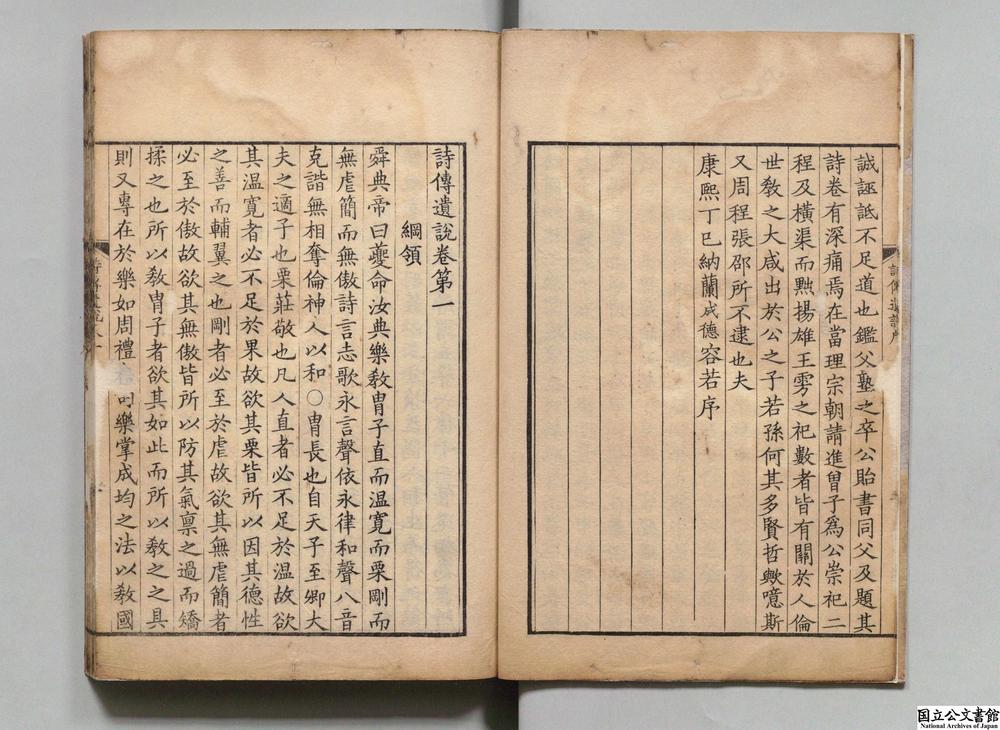 誠誣詆不足道也鑑父塾之卒公貽書同父及題其
詩卷有深痛焉在當理宗朝請進曽子爲公崇祀二
程及橫渠而黜揚雄王雱之祀數者皆有關於人倫
世敎之大咸出於公之子若孫何其多賢哲歟噫斯
又周程張邵所不逮也夫
康熙丁巳納蘭成德容若序
詩傳遺說卷第一
綱領
舜典帝曰夔命汝典樂敎胄子直而温寬而栗剛而
無虐簡而無傲詩言志歌永言聲依永律和聲八音
克諧無相奪倫神人以和○胄長也自天子至卿大
夫之適子也栗莊敬也凡人直者必不足於温故欲
其温寬者必不足於栗故欲其栗皆所以因其德性
之善而輔翼之也剛者必至於虐故欲其無虐簡者
必至於傲故欲其無傲皆所以防其氣稟之過而矯
揉之也所以敎胄子者欲其如此而所以敎之之具
則又專在於樂如周禮 樂掌成均之法以敎國
国立公文書館
National Archives of Japan